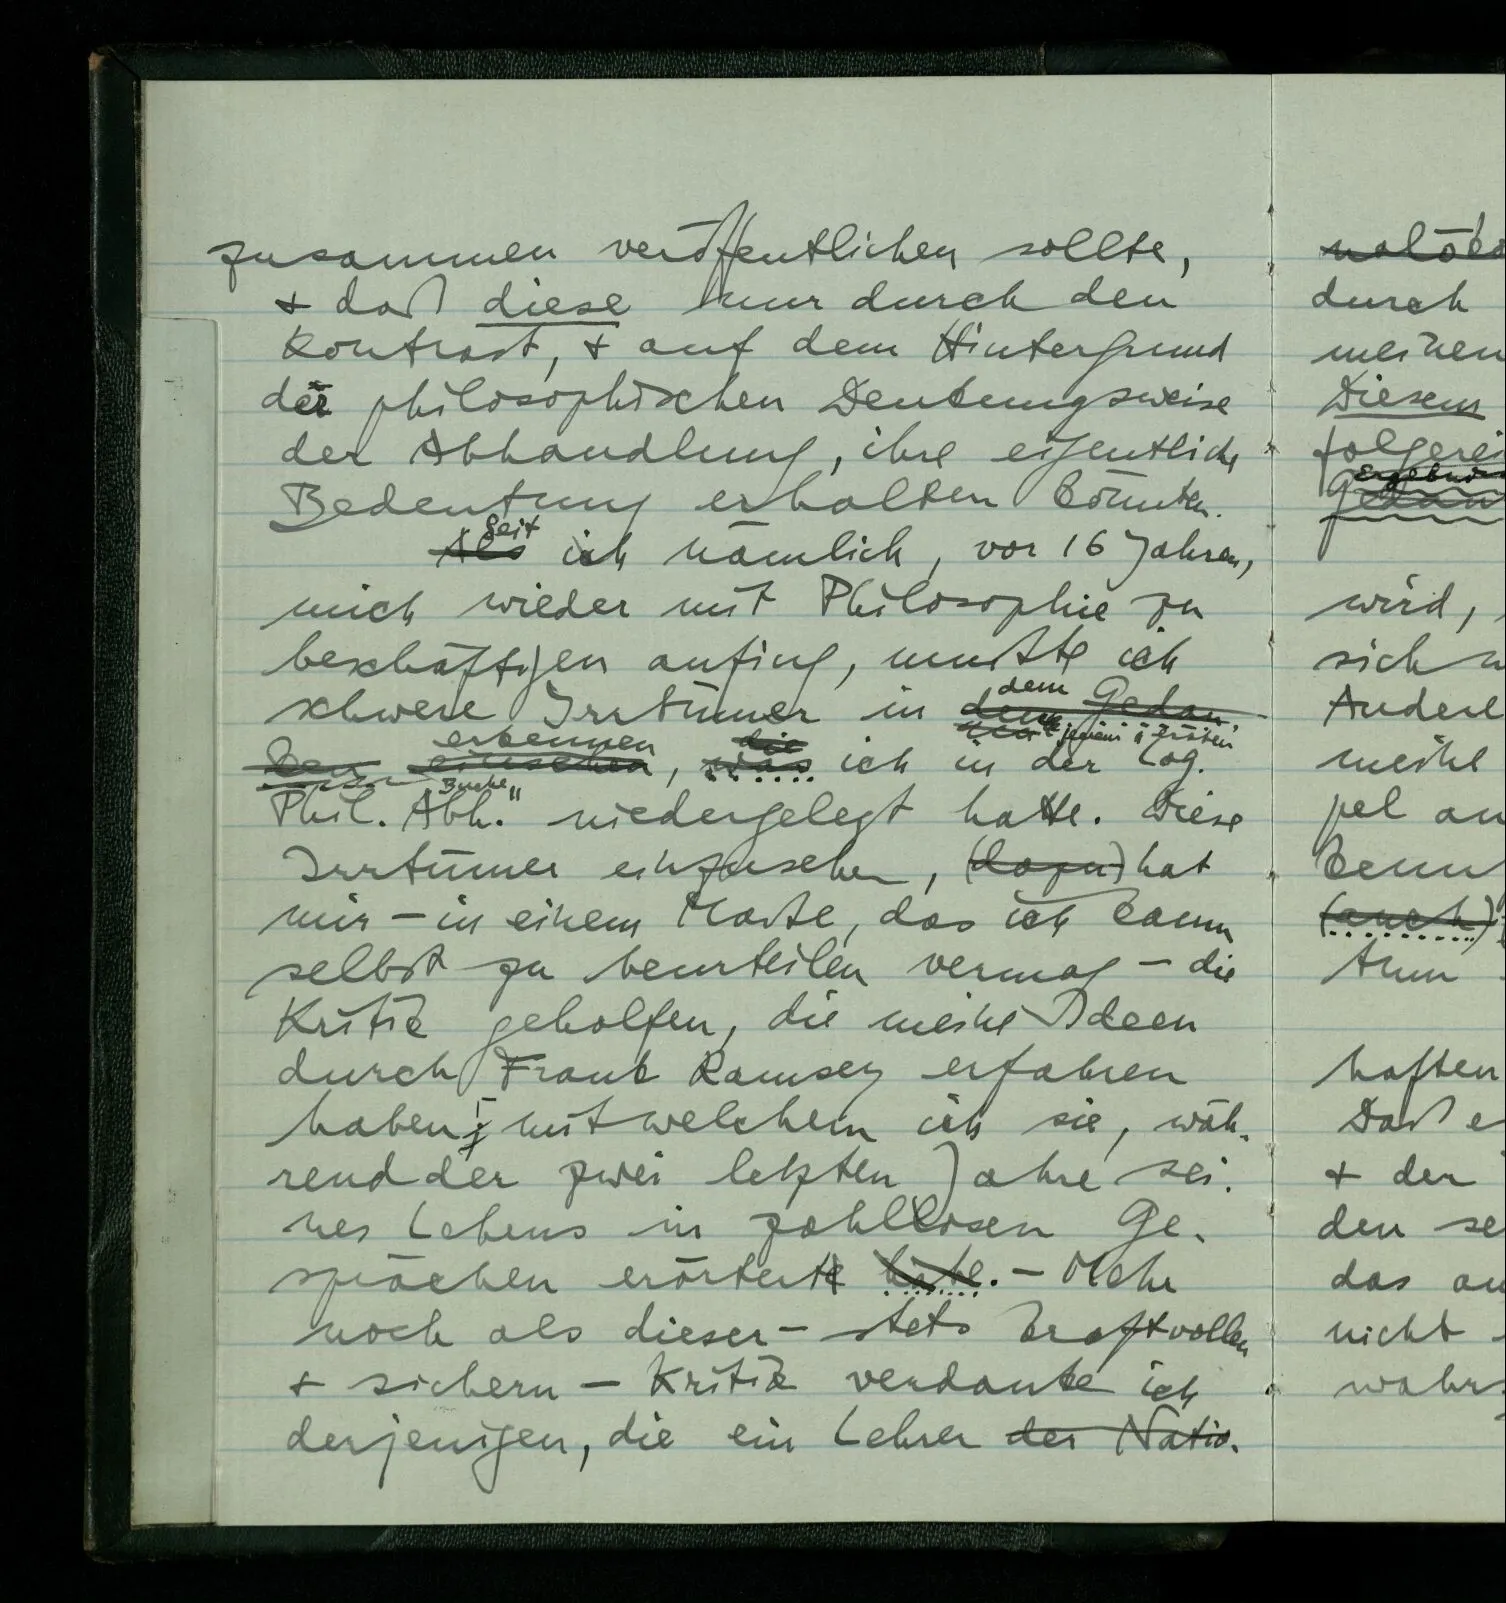 zusammen veröffentlichen sollte,
+ daß diese nur durch den
Kontrast, + auf dem Hintergrund
der philosophischen Deutungsweise
der Abhandlung, ihre eigentliche
Bedeutung erhalten könnten.
Seit
Als ich nämlich, vor 16 Jahren,
mich wieder mit Philosophie zu
beschäftigen anfing, mußte ich
dem
schwere Irrtümer in dem Gedan-
jenem ersten
erkennen die
ken einsehen, was ich in der Log.
Buche"
Phil. Abh." niedergelegt hatte. Diese
Irrtümer einzusehen, (dazu) hat
mir – in einem Maße, das ich kaum
selbst zu beurteilen vermag – die
Kritik geholfen, die meine Ideen
durch Frank Ramsey erfahren
haben; mit welchem ich sie, wäh-
rend der zwei letzten Jahre sei-
nes Lebens in zahllosen Ge-
sprächen erörterte habe. – Mehr
noch als dieser – stets kraftvollen
+ sichern – Kritik verdanke ich
derjenigen, die ein Lehrer der Natio-
durch
meinen
Diesem
folgerei
Ergebnis
Gedan
wird,
sich
Andere
meine
pel an
kenn
(auch)
tum
haften
Daß e
+ der
den se
das au
nicht
wahrs